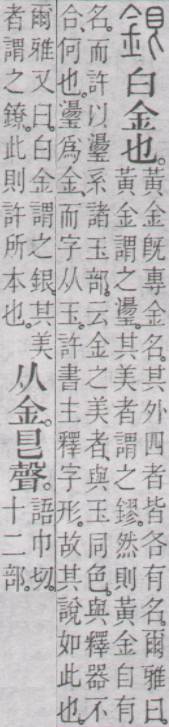 銀白金也。
黃金旣專金名。其外四者皆各有名。爾雅曰。
黃金謂之璗。其美者謂之鏐。然則黃金自有
名。而許以璗系諸玉部。云金之美者。與玉同色。與釋器不
合。何也。璗爲金。而字从玉。許書主釋字形。故其說如此也。
爾雅又曰。白金謂之銀。其美
者謂之鐐。此則許所本也。
从金。艮聲。
語巾切。
十二部。